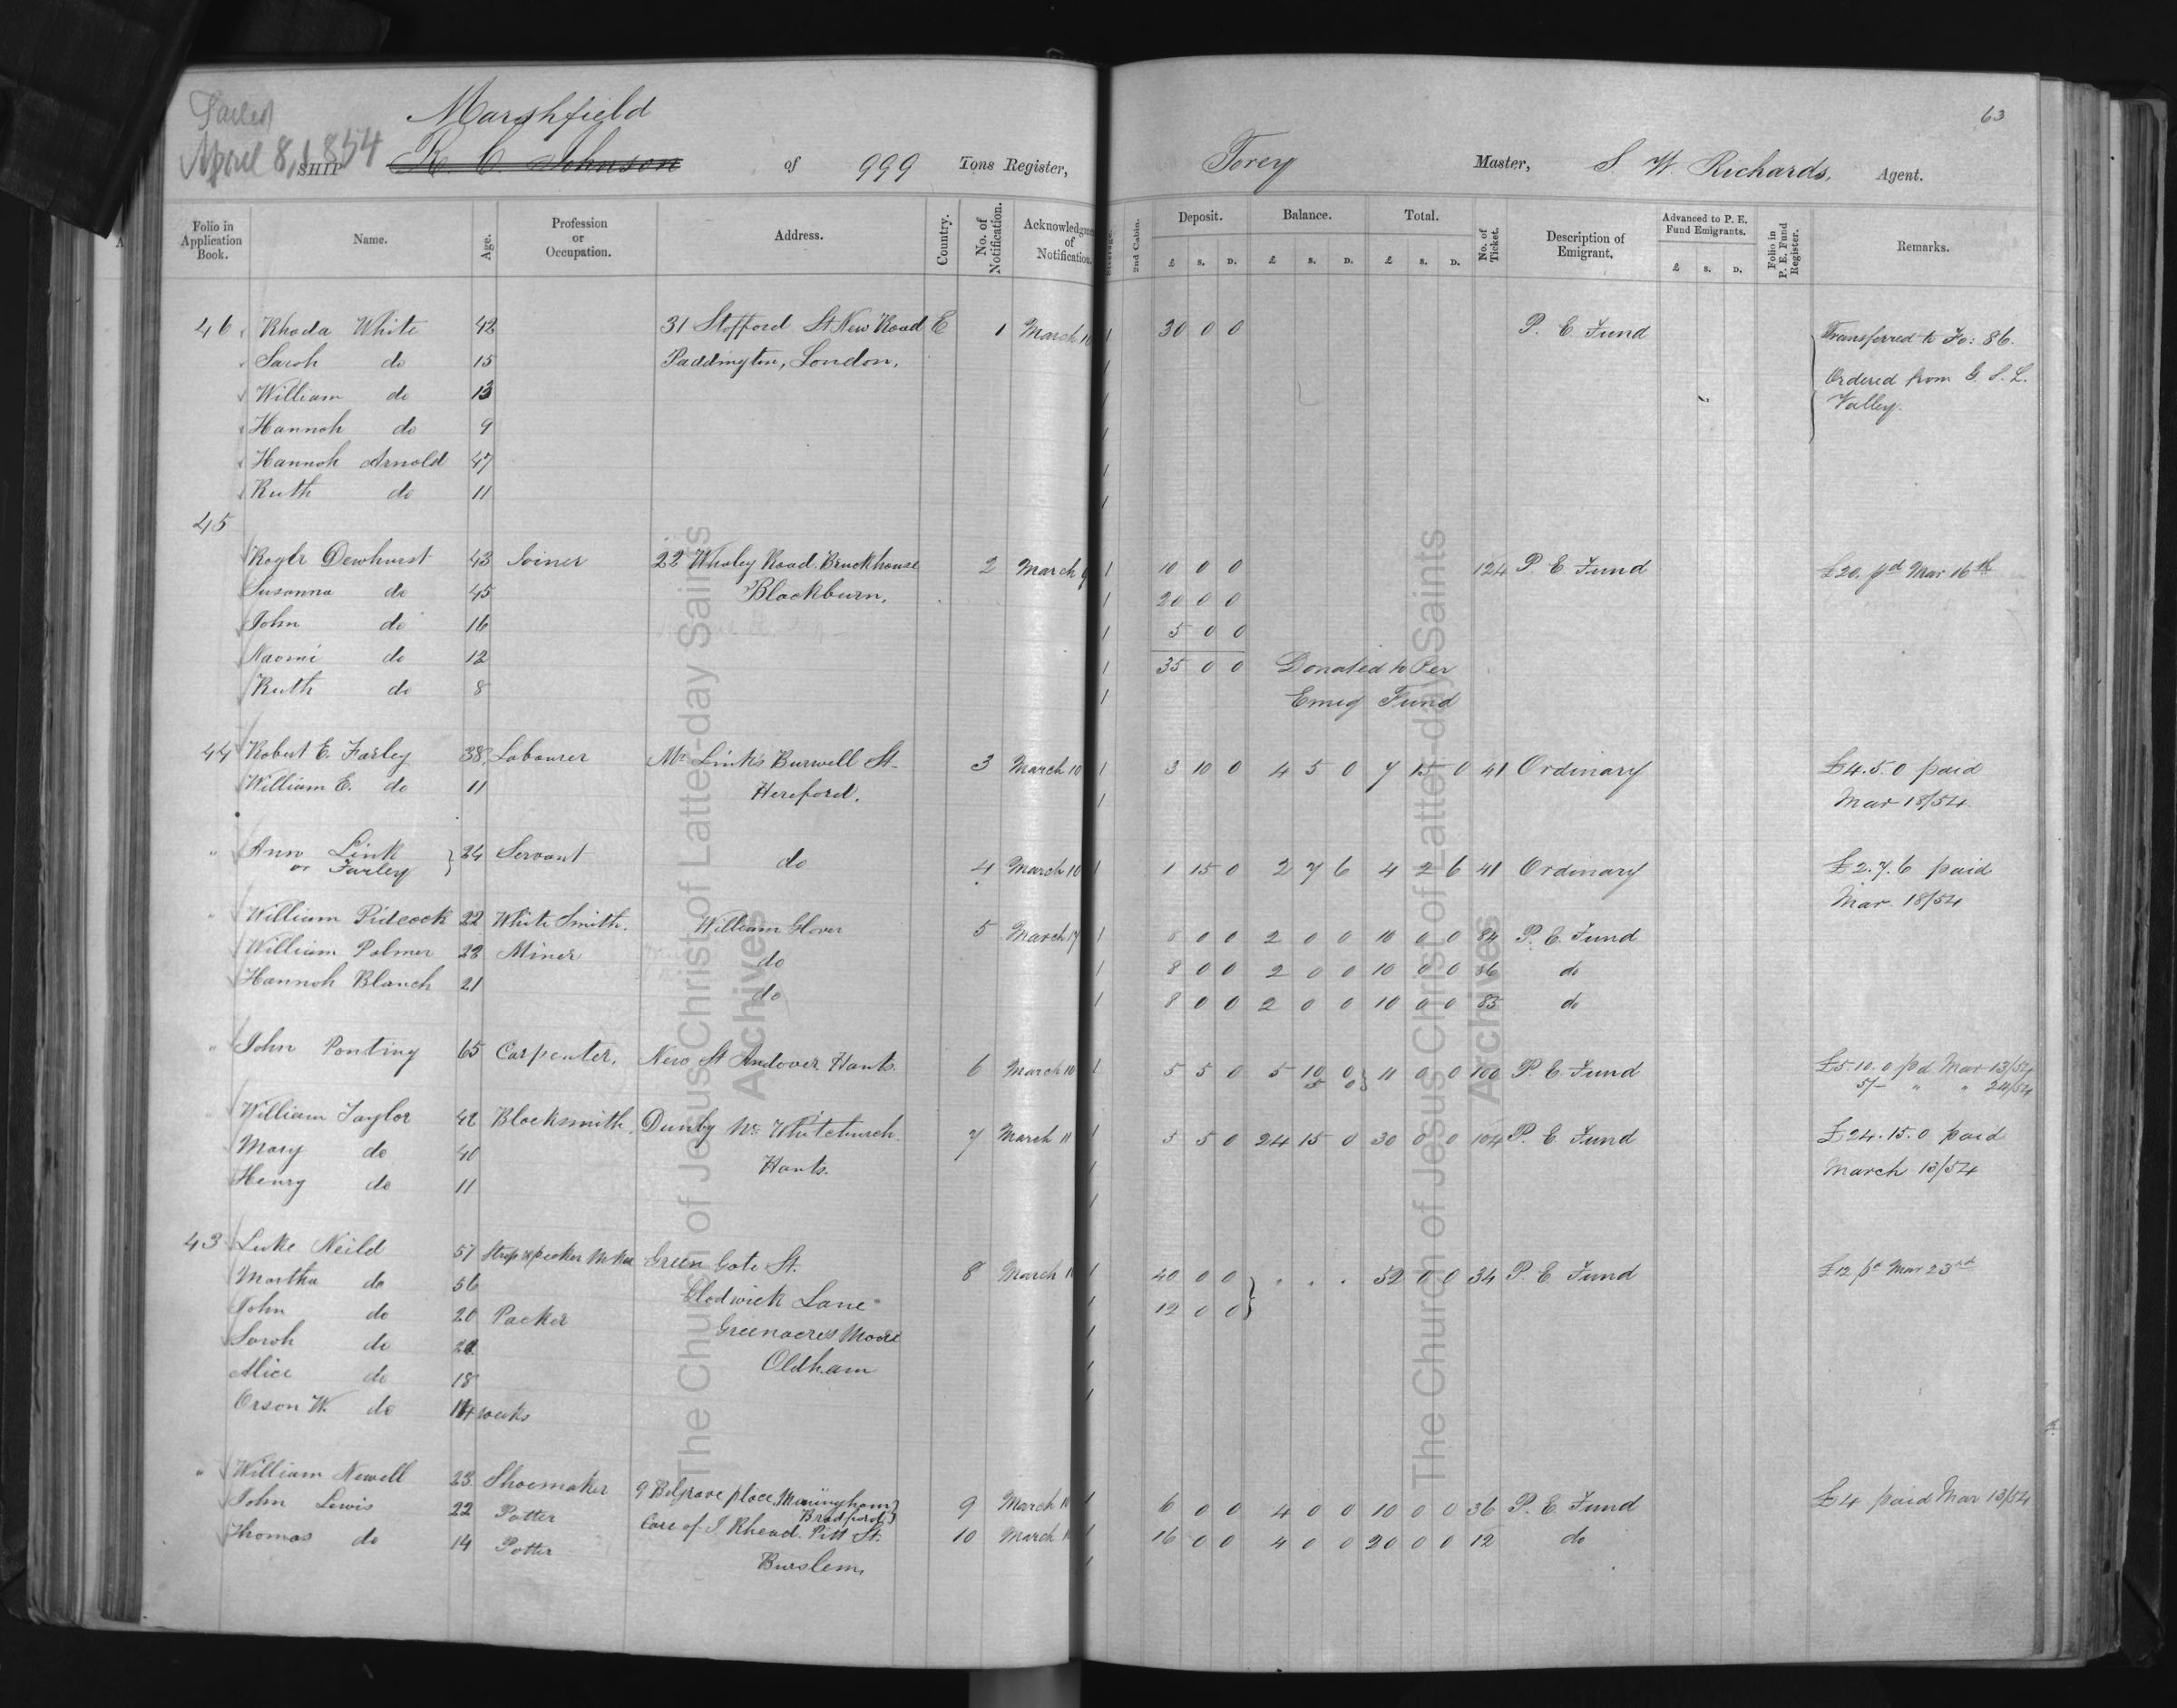 Sailed
April 8, 1854
Marshfield
SHIP R. C. Johnson of 999 Tons Register, Torey Master, S W. Richards, Agent.
63
Folio in Application Book. Name. Age. Profession or Occupation. Address. Country. No. of Notification. Acknowledgment of Notification. Steerage. 2nd Cabin. Deposit. Balance. Total. No. of Ticket. Description of Emigrant. Advanced to P. E. Fund Emigrants. Folio in P. E. Fund Register. Remarks.
£ S. D. £ S. D. £ S. D. £ S. D.
46 Rhoda White 42 31 Stofford St New Road E 1 March 10 1 30 0 0 P. E Fund Transferred to Fo: 86.
Sarah do 15 Paddington, London, 1
William do 13 1 Ordered from G. S. L. Valley.
Hannah do 9 1
Hannah Arnold 47 1
Ruth do 11 1
45
Roger Dewhurst 43 Joiner 22 Whaley Road. Bruckhouse 2 March 9 1 10 0 0 124 P. E. Fund £20. pd Mar 16th
Susanna do 45 Blackburn, 1 20 0 0
John do 16 1 5 0 0
Naomi do 12 1 35 0 0 Donated to Per
Ruth do 8 1 Emig Fund
44 Robert E. Farley 38 Labourer Mr Link's Burwell St 3 March 10 1 3 10 0 4 5 0 7 15 0 41 Ordinary £4.5.0 paid
William E. do 11 Hereford. 1 Mar 18/54
" Ann Link or Farley } 24 Servant do 4 March 10 1 1 15 0 2 7 6 4 2 6 41 Ordinary £2.7.6 paid
Mar. 18/54
" William Pidcock 22 White Smith. William Glover 5 March 17 1 8 0 0 2 0 0 10 0 0 84 P. E. Fund
William Palmer 22 Miner do 1 8 0 0 2 0 0 10 0 0 86 do
Hannah Blanch 21 do 1 8 0 0 2 0 0 10 0 0 85 do
" John Ponting 65 Carpenter, New St Andover Hants. 6 March 10 1 5 5 0 5 10 0 11 0 0 100 P. E Fund £5.10.0 pd Mar 13/54
5 0 5/- " " 24/54
William Taylor 42 Blacksmith, Dunby Nr. Whitchurch 7 March 11 1 5 5 0 24 15 0 30 0 0 104 P. E Fund £24.15.0 paid
Mary do 40 Hants. 1 March 13/54
Henry do 11 1
43 Luke Neild 57 Strap & pecker Mker Green Gate St. 8 March 1 40 0 0 } . . . 52 0 0 34 P. E Fund £12 pd Mar 23rd
Martha do 56 Glodwick Lane 1 12 0 0
John do 20 Packer Greenacres Moore 1
Sarah do 20 Oldham 1
Alice do 18 1
Orson W. do 14 weeks
" William Newell 23 Shoemaker 9 Belgrave place, Manningham Bradford 9 March 10 1 6 0 0 4 0 0 10 0 0 36 P. E Fund £4 paid Mar 13/54
John Lewis 22 Potter Care of J. Rhead. Pitt St. 10 March 1 16 0 0 4 0 0 20 0 0 12 do
Thomas do 14 Potter Burslem, 1
The Church of Jesus Christ of Latter-day Saints
Archives
The Church of Jesus Christ of Latter-day Saints
Archives